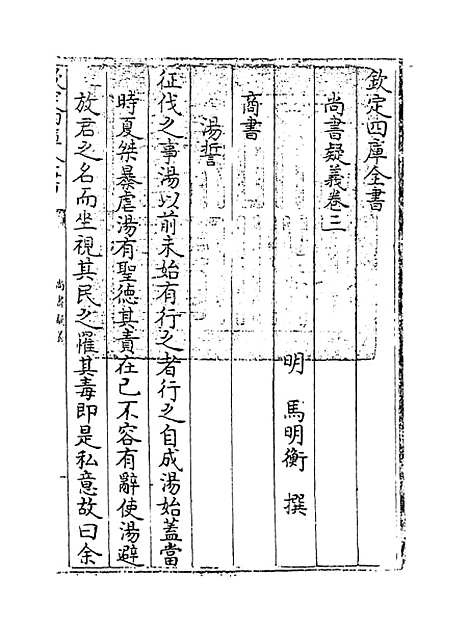 欽定四庫全書
尚書疑義卷三
明 馬明衡 撰
商書
湯誓
征伐之事湯以前未始有行之者行之自成湯始蓋當
時夏桀暴虐湯有聖德其責在已不容有辭使湯避
放君之名而坐視其民之罹其毒即是私意故曰余
尚書疑義
一